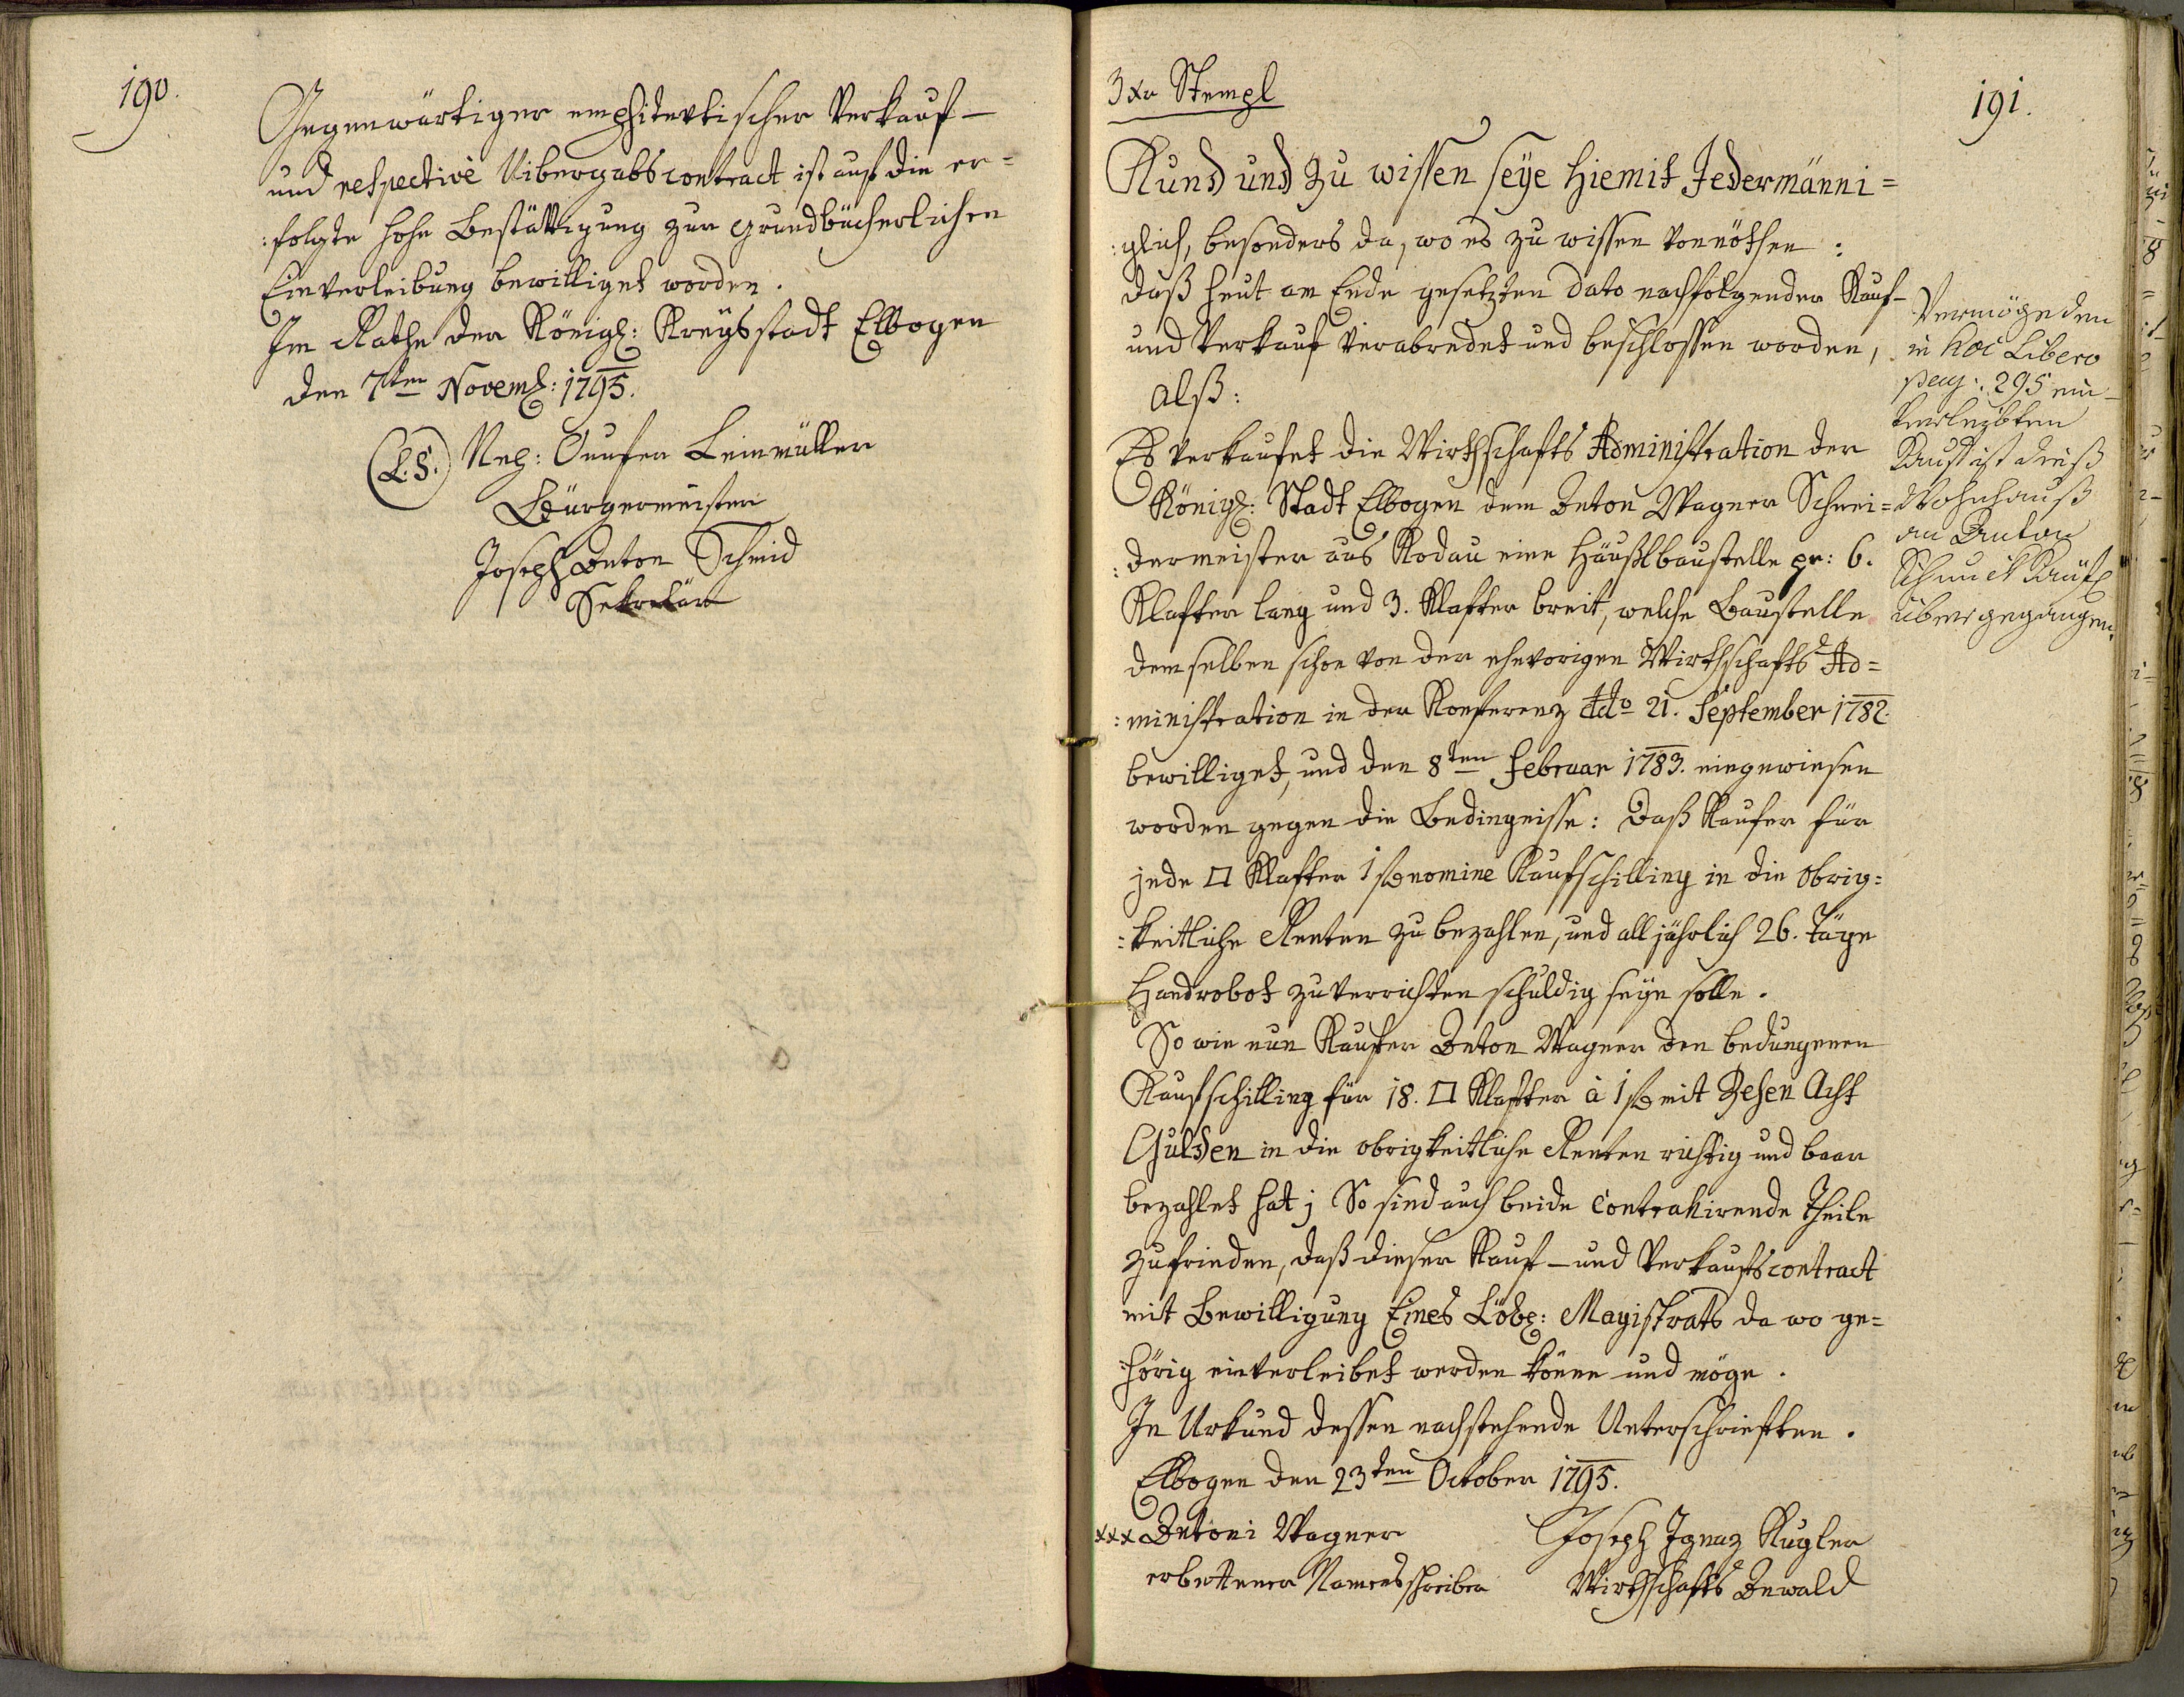 190.
Gegenwärtiger emphitevtischer Verkauf-
und respective Uibergabscontract ist auf die er=
:folgte hohe Bestättigung zur grundbücherlichen
Einverleibung bewilliget worden.
Im Rathe der Königl: Kreysstadt Elbogen
den 7ten Novemb: 1795.
(L.S.) Math: Leinmüller
Bürgermeister
Joseph Anton Schmid
Sekretär
3 Xr Stempl
191.
Kund und zu wissen seye hiemit Jedermänni=
:glich, besonders da, wo es zu wissen vonnöthen :
daß heut am Ende gesetzten dato nachfolgender Kauf-
und Verkauf verabredet und beschlossen worden,
alß:
Es verkaufet die Wirthschafts Administration der
Königl: Stadt Elbogen dem Anton Wagner Schnei=
:dermeister aus Rodau eine Häußlbaustelle pr: 6.
Klafter lang und 3. Klafter breit, welche Baustelle
demselben schon von der ehevorigen Wirthschafts Ad=
:ministration in der Konferenz ddo 21. September 1782.
bewilliget, und den 8ten Februar 1783. eingewiesen
worden gegen die Bedingnisse: Daß Kaufer für
jede □ Klafter 1 f nomine Kaufschilling in die Obrig=
:keitliche Renten zu bezahlen, und all jährlich 26. Täge
Handrobot zu verrichten schuldig seyn solle.
So wie nun Kaufer Anton Wagner den bedungenen
Kaufschilling für 18. □ Klafter à 1 f mit Zehen Acht
Gulden in die obrigkeitliche Renten richtig und baar
bezahlet hat; So sind auch beide Contrahirende Theile
zufrieden, daß dieser Kauf- und Verkaufscontract
mit Bewilligung Eines Löbl: Magistrats da wo ge=
:hörig einverleibet werden könne und möge.
In Urkund dessen nachstehende Unterschriften.
Elbogen den 23ten October 1795.
xxx Antoni Wagner
erbettener Namensschreiber
Joseph Ignaz Kugler
Wirthschafts Anwald
Vermöge den
in hoc Libero
pag: 295 ein-
verleibten
Kauf ist dieß
Wohnhauß
an Anton
Schmuck Käufl
übergegangen.